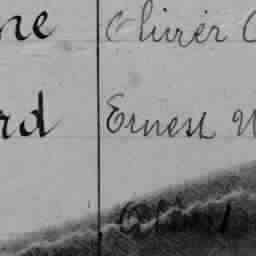 ne Oliver C
rd Ernest W